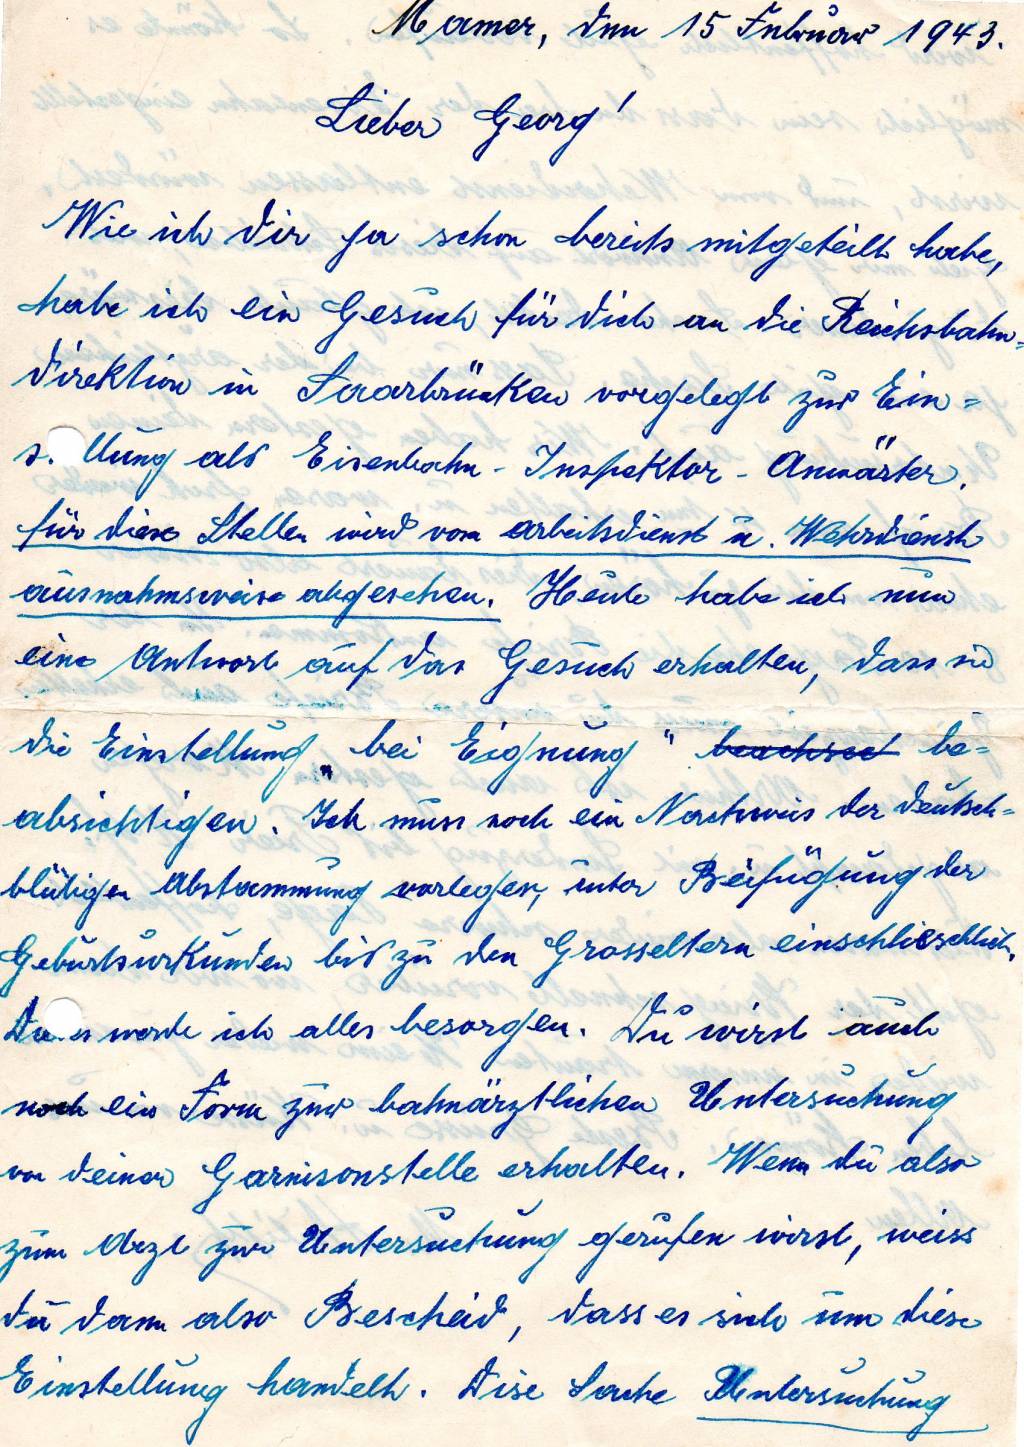 Mamer, den 15 Februar 1943.
Lieber Georg!
Wie ich dir ja schon bereits mitgeteilt habe,
habe ich ein Gesuch für dich an die Reichsbahn=
direktion in Saarbrücken vorgelegt zur Ein=
s. llung als Eisenbahn-Inspektor-Anwärter.
für diese Stellen wird vom Arbeitsdienst u. Wehrdienst
ausnahmsweise abgesehen. Heute habe ich nun
eine Antwort auf das Gesuch erhalten, dass sie
die Einstellung „bei Eignung" be=
absichtigen. Ich muss noch ein Nachweis der deutsch=
blütigen Abstammung vorlegen, unter Beifügung der
Geburtsurkunden bis zu den Grosseltern einschlieschlich.
Di.es werde ich alles besorgen. Du wirst auch
noch ein Form zur bahnärztlichen Untersuchung
von deiner Garnisonstelle erhalten. Wenn du also
zum Arzt zur Untersuchung gerufen wirst, weiss
du dann also Bescheid, dass es sich um diese
Einstellung handelt. Dise Sache Untersuchung